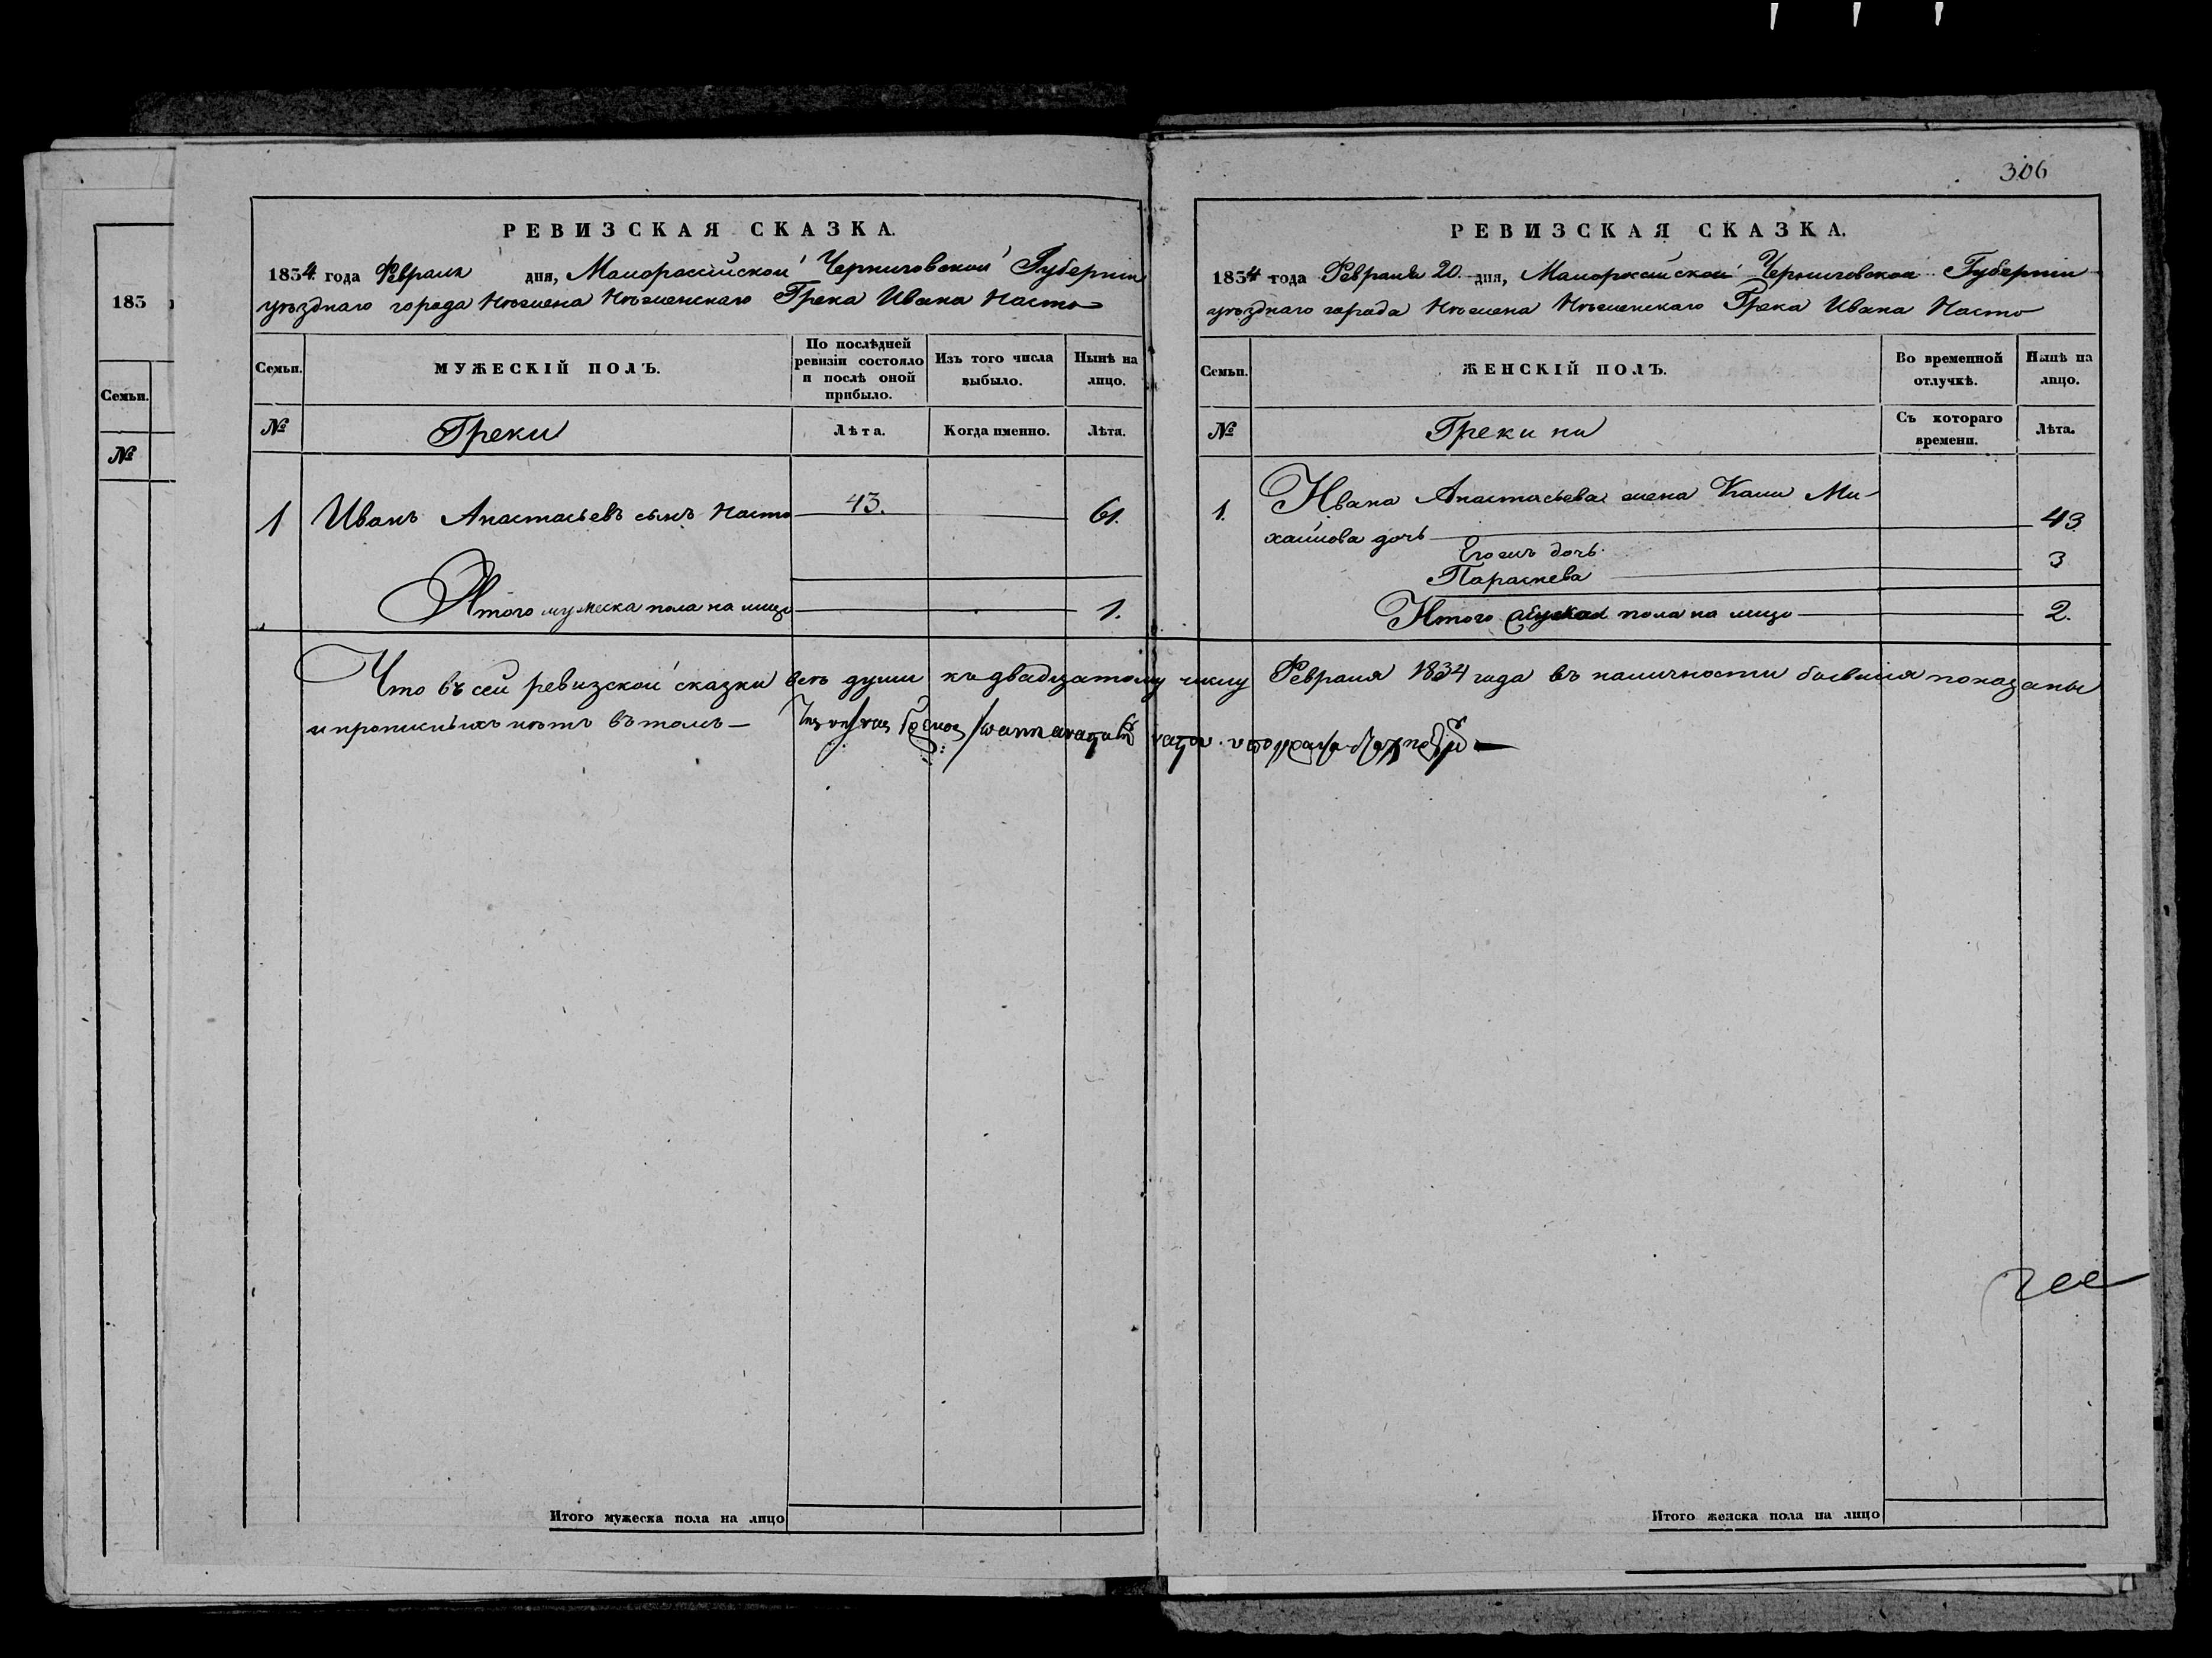 306
РЕВИЗСКАЯ СКАЗКА.
1834 года Февраля дня, Малороссійской Черниговской Губерніи
уѣзднаго города Нѣжина Нѣжинскаго Грека Ивана Насто
Семьи.
МУЖЕСКІЙ ПОЛЪ.
По послѣдней ревизіи состояло и послѣ оной прибыло.
Изъ того числа выбыло.
Нынѣ на лицо.
№
Греки
Лѣта.
Когда именно.
Лѣта.
1 Иванъ Анастасьевъ сынъ Насто 43. 61.
Итого мужеска пола на лицо 1.
Что въ сей ревизской сказки всѣ души къ двадцатому числу Февраля 1834 года въ наличности бывшія показаны
и прописныхъ нѣтъ въ томъ —
Итого мужеска пола на лицо
183
Семьи.
№
РЕВИЗСКАЯ СКАЗКА.
1834 года Февраля 20 дня, Малороссійской Черниговской Губерніи
уѣзднаго города Нѣжина Нѣжинскаго Грека Ивана Насто
Семьи.
ЖЕНСКІЙ ПОЛЪ.
Во временной отлучкѣ.
Нынѣ на лицо.
№
Грекини
Съ котораго времени.
Лѣта.
1. Ивана Анастасьева жена Ми-
хайлова дочь 43
Егожъ дочь
Параскева 3
Итого пола на лицо 2.
Итого женска пола на лицо